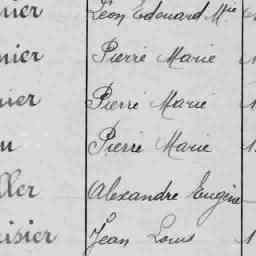 nier Léon Edouard Mie
nier Pierre Marie
nier Pierre Marie
Pierre Marie
ller Alexandre Eugène
isier Jean Louis